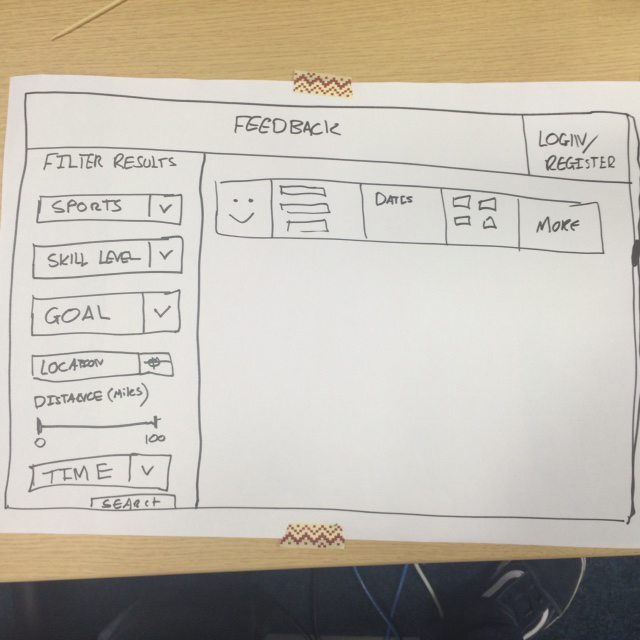 FEEDBACK
LOGIN/
REGISTER
FILTER RESULTS
SPORTS
SKILL LEVEL
GOAL
LOCATION
DISTANCE (MILES)
0 100
TIME
SEARCH
DATES
MORE